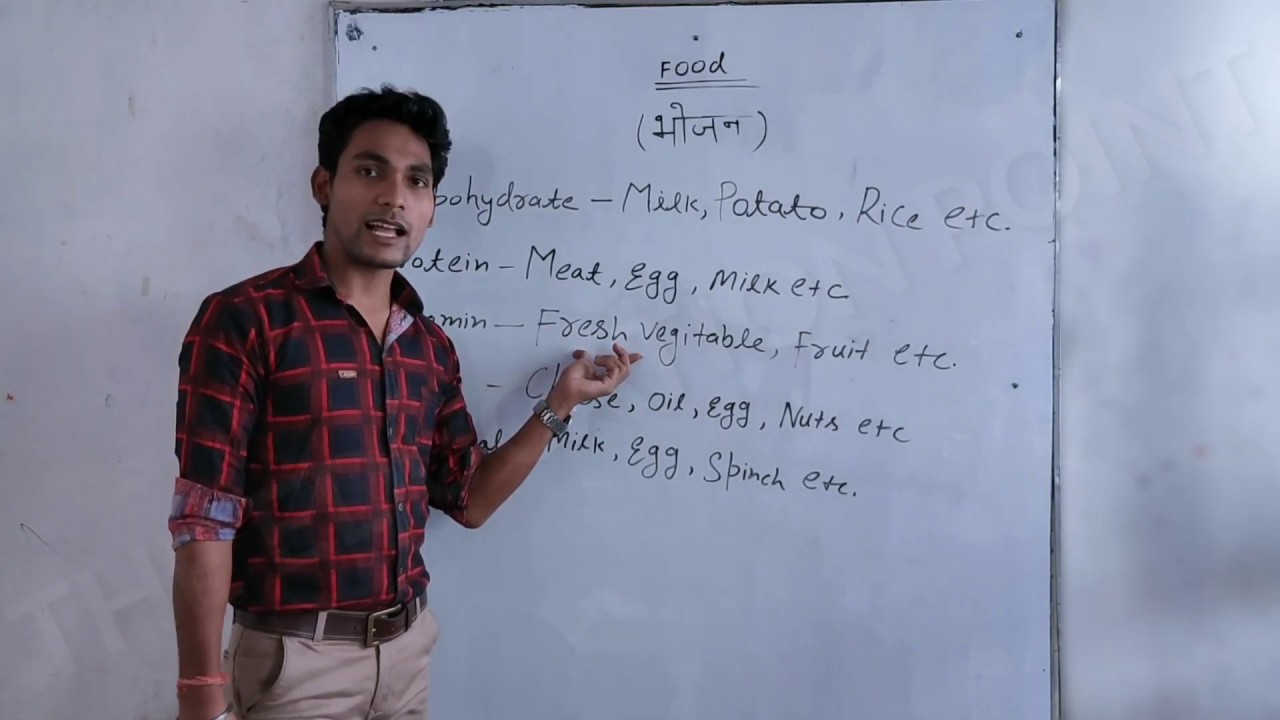 FOOD
(भोजन)
bohydrate - Milk, Patato, Rice etc.
otein - Meat, Egg, Milk etc
min - Fresh vegitable, Fruit etc.
- Oil, Egg, Nuts etc
al Milk, Egg, Spinch etc.